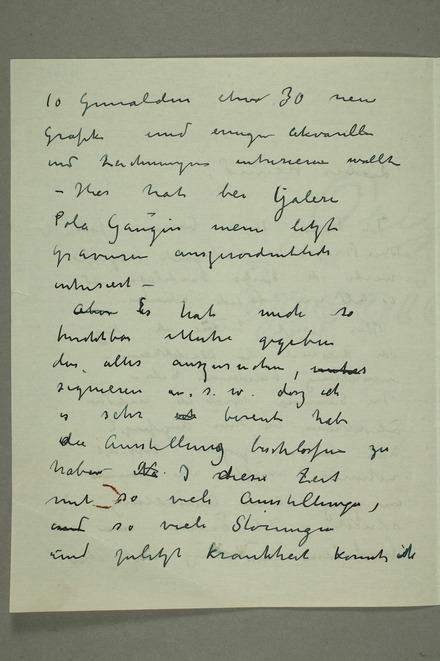 10 Gemälden etwa 30 neue
Grafik und einigen Akvarellen
und Zeichnungen
– Hier hat bei
Pola Gauguin meine letzte
Gravuren ausserordentlich
intresiert –
Es hat mich so
furchtbar Mühe gegeben
das alles auszusuchen,
signieren u. s. w. dass ich
es sehr bereut habe
die Ausstellung beschlossen zu
haben. I diese Zeit
mit so viele Ausstellungen,
so viele Störungen
und zuletzt Krankheit konnte ich